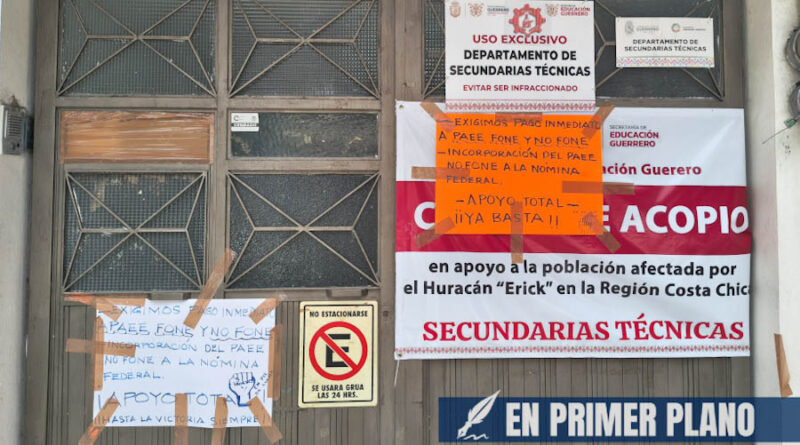 EDUCACIÓN
GUERRERO
USO EXCLUSIVO
DEPARTAMENTO DE
SECUNDARIAS TÉCNICAS
EVITAR SER INFRACCIONADO
DEPARTAMENTO DE
SECUNDARIAS TÉCNICAS
-EXIGIMOS PAGO INMEDIAT
A PAEE FONE Y NO FONE
-INCORPORACIÓN DEL PAEE
NO FONE A LA NÓMINA
FEDERAL.
-APOYO TOTAL-
¡¡YA BASTA!!
SECRETARÍA DE
EDUCACIÓN
GUERRERO
ación Guerero
C E ACOPIO
en apoyo a la población afectada por
el Huracán "Erick" en la Región Costa Chic
SECUNDARIAS TÉCNICAS
-EXIGIMOS PAGO INMEDIAT
A PAEE FONE Y NO FONE
INCORPORACIÓN DEL PAEE
NO FONE A LA NÓMINA
FEDERAL.
¡APOYO TOTAL
¡HASTA LA VICTORIA SIEMPRE!
NO ESTACIONARSE
E
SE USARA GRUA
LAS 24 HRS.
EN PRIMER PLANO